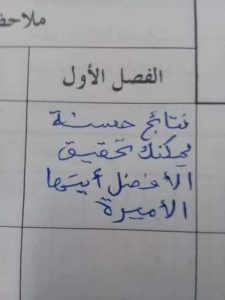 ملاحظ
الفصل الأول
نتائج حسنة
يمكنك تحقيق
الأفضل أيتها
الأميرة